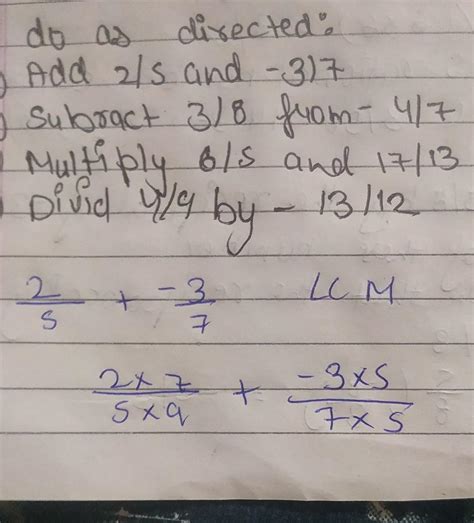 do as directed:
) Add 2/5 and -3/7
) Subract 3/8 from - 4/7
) Multiply 6/5 and 17/13
) Divid 4/9 by - 13/12
2/5 + -3/7 LCM
2×7/5×9 + -3×5/7×5